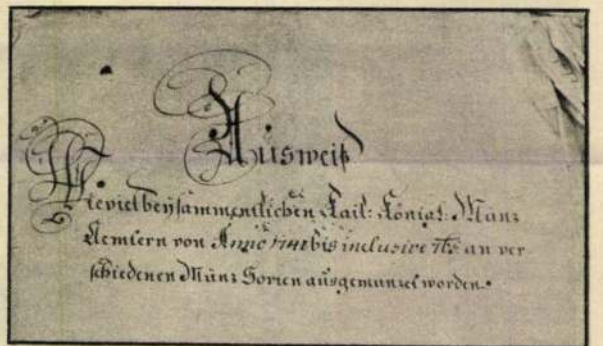 Ausweiß
Wieviel bey sämmentlichen Kail: Königl: Münz
Aemtern von Anno bis inclusive an ver
schiedenen Münz Sorten ausgemünzet worden.